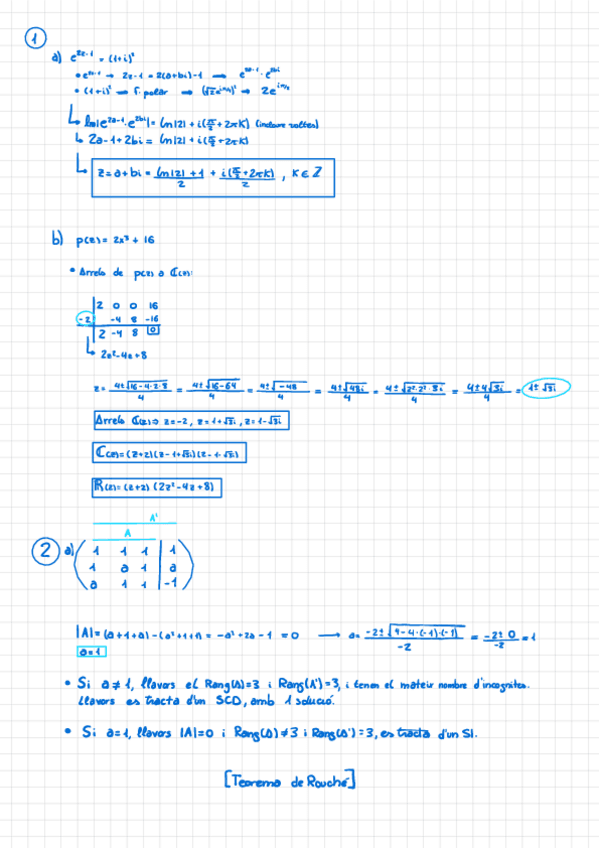 1
a) e^{2z-1} = (1+i)^2
• e^{2z-1} → 2z-1 = 2(a+bi)-1 → e^{2a-1} · e^{2bi}
• (1+i)^2 → F. polar → → 2e^{iπ/2}
ln|e^{2a-1} · e^{2bi}| = ln|2| + i(π/2 + 2πK) (incloure voltes)
2a-1+2bi = ln|2| + i(π/2 + 2πK)
z = a+bi = (ln|2|+1)/2 + i(π/2 + 2πK)/2 , K ∈ Z
b) p(z) = 2x^3 + 16
• Arrels de p(z) a ℂ(z):
2 0 0 16
-2 -4 8 -16
2 -4 8 0
2z^2-4z+8
z = (4±√(16-4·2·8))/4 = (4±√(16-64))/4 = (4±√-48)/4 = (4±√48i)/4 = (4±√(2^2·2^2·3i))/4 = (4±4√3i)/4 = 1±√3i
Arrels ℂ(z) ⇒ z=-2, z=1+√3i, z=1-√3i
ℂ(z) = (z+2)(z-1+√3i)(z-1-√3i)
ℝ(z) = (z+2)(2z^2-4z+8)
A'
A
2 a) 1 1 1 | 1
1 a 1 | a
a 1 1 | -1
|A| = (a+1+a)-(a^2+1+1) = -a^2+2a-1 = 0 → a = (-2±√(4-4·(-1)·(-1)))/-2 = (-2±0)/-2 = 1
a=1
• Si a ≠ 1, llavors el Rang(A)=3 i Rang(A')=3, i tenen el mateix nombre d'incognites.
Llavors es tracta d'un SCD, amb 1 solució.
• Si a=1, llavors |A|=0 i Rang(A)≠3 i Rang(A')=3, es tracta d'un SI.
[Teorema de Rouché]